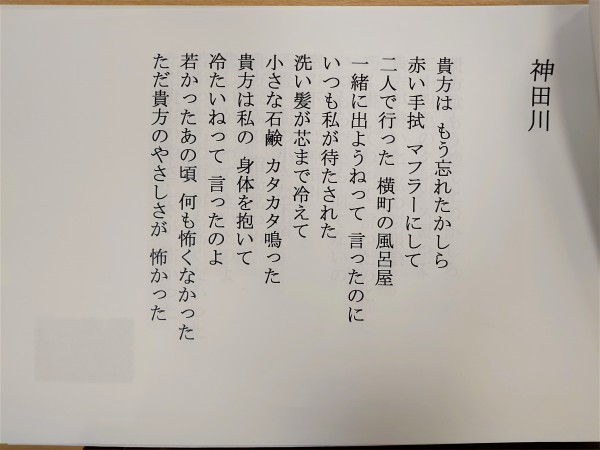 神田川
貴方は もう忘れたかしら
赤い手拭 マフラーにして
二人で行った 横町の風呂屋
一緒に出ようねって 言ったのに
いつも私が待たされた
洗い髪が芯まで冷えて
小さな石鹸 カタカタ鳴った
貴方は私の 身体を抱いて
冷たいねって 言ったのよ
若かったあの頃 何も怖くなかった
ただ貴方のやさしさが 怖かった